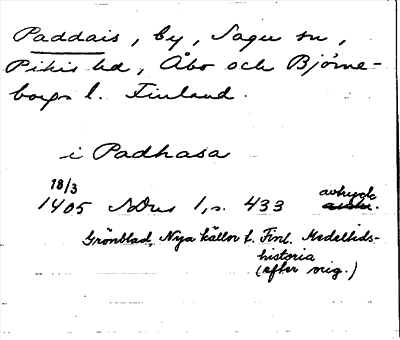 Paddais, by, Sagu sn,
Pikis hd, Åbo och Björne-
borgs l. Finland.
i Padhasa
18/3
1405 NDus 1, s. 433 avtryck
Grönblad, Nya källor t. Finl. Medeltids-
historia
(efter orig.)